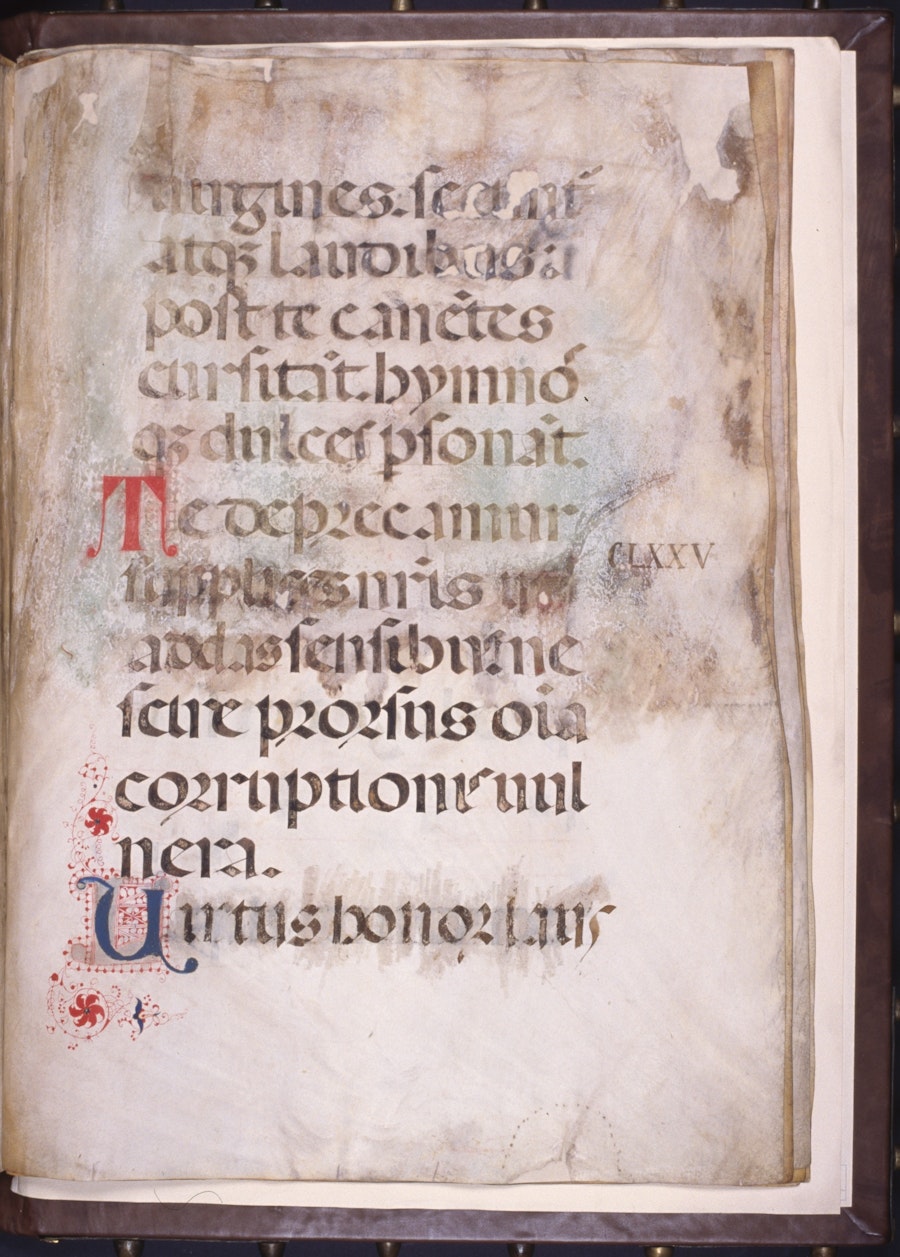 uirgines: secunt̃
atqꝫ laudibus:
post te canẽtes
cursitãt. hymnó
qꝫ dulces ꝑsonãt.
Te deprecamur
CLXXV
supplices nr̃is ut
addas sensibus: ne
scire prorsus oĩa
corruptionis uul
nera.
Uirtus honor laus